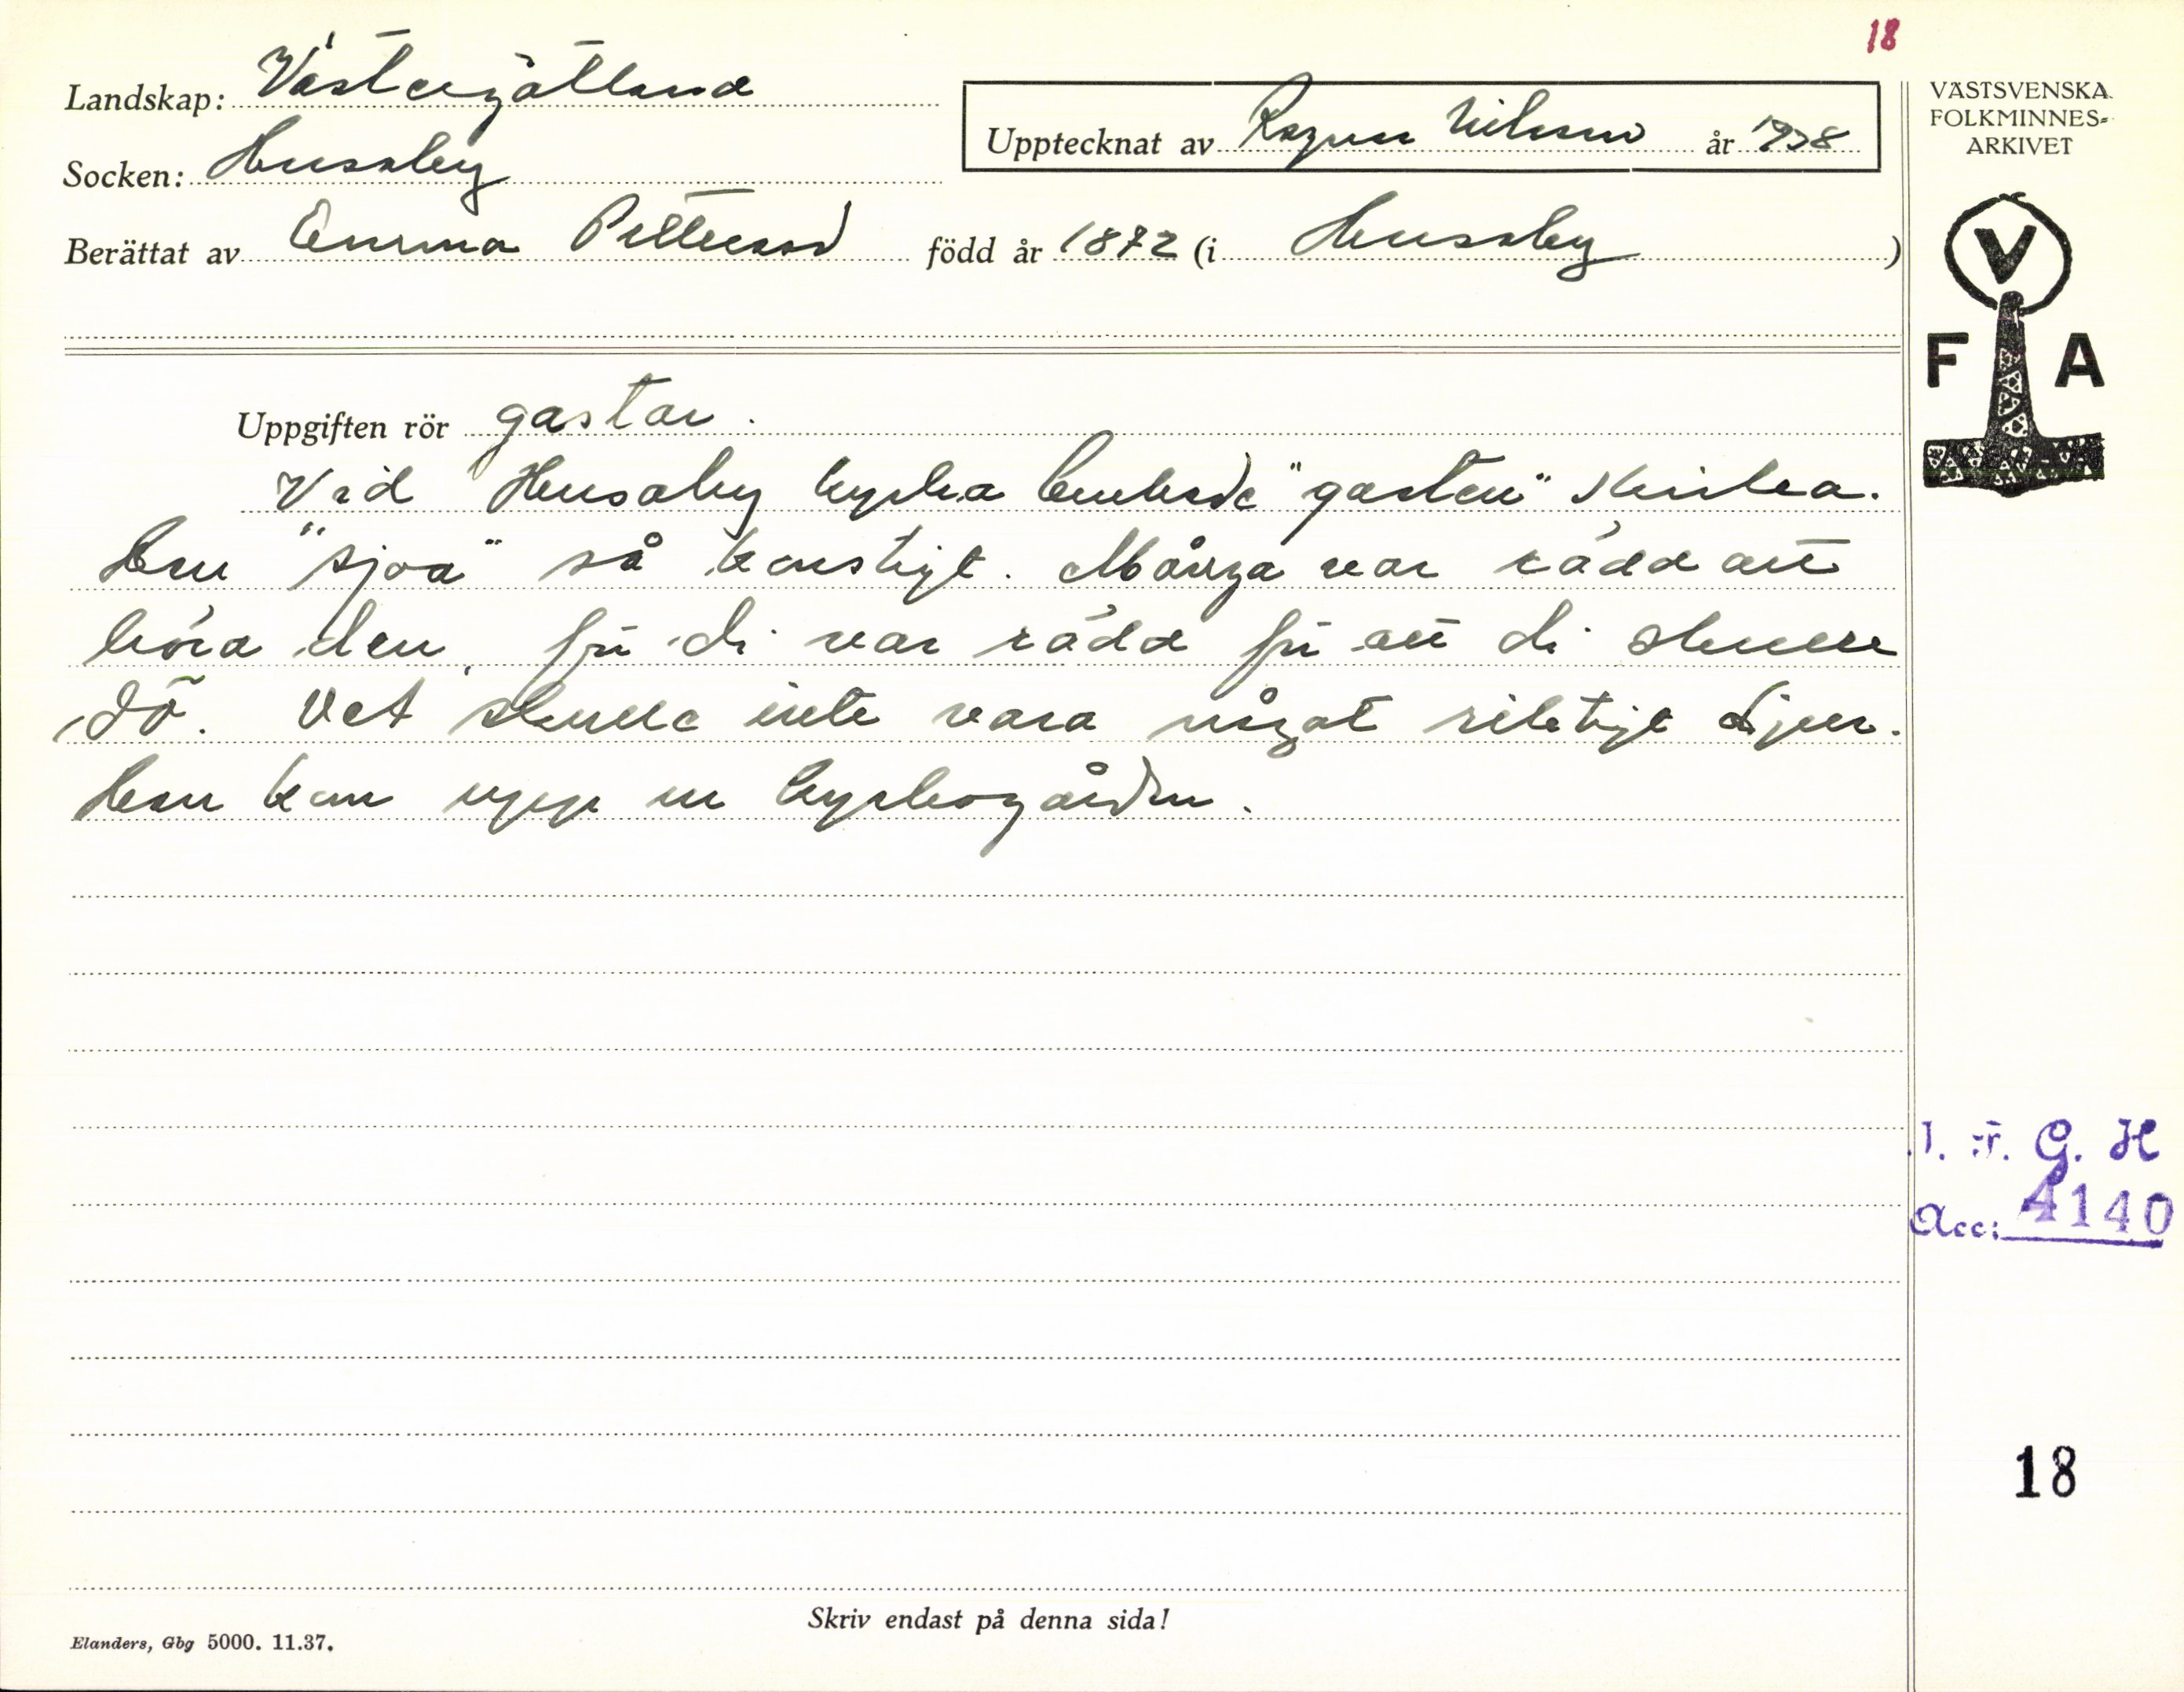 18
Landskap: Västergötland
Upptecknat av Ragnar Nilsson år 1938
Socken: Husaby
Berättat av Emma Pettersson född år 1872 (i Husaby)
VÄSTSVENSKA
FOLKMINNES-
ARKIVET
V
F A
Uppgiften rör gastar.
Vid Husaby kyrka brukade "gasten" skrika.
Den "sjöa" så konstigt. Många var rädd att
höra den, för di var rädd för att di skulle
dö. Det skulle inte vara något riktigt djur.
Den kom upp ur kyrkogården.
I. F. G. H
Acc: 4140
18
Skriv endast på denna sida!
Elanders, Gbg 5000. 11.37.